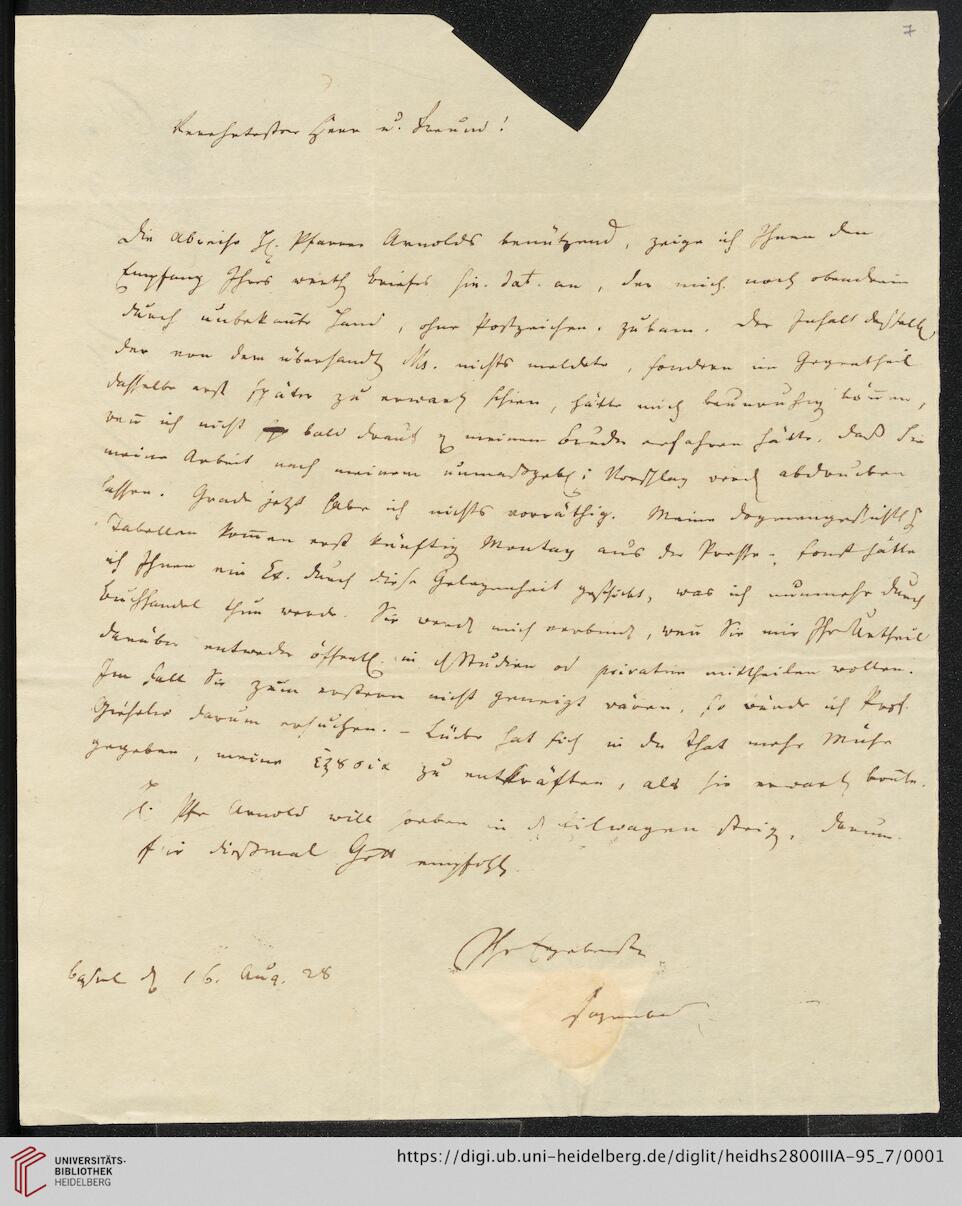 7
Verehrtester Herr u. Freund!
Die Abreise H. Pfarrer Arnolds benützend, zeige ich Ihnen den
Empfang Ihres werth. Briefes sin. dat. an, der mich noch obendrein
durch unbekannte Hand, ohne Postzeichen, zukam. Der Inhalt desselb.
der von dem übersandt. Ms. nichts meldete, sondern im Gegentheil
dasselbe erst später zu erwart. schien, hätte mich beunruhig. können,
wenn ich nicht bald drauf v. meinem Bruder erfahren hätte, daß Sie
meine Arbeit nach meinem unmaßgebl. Vorschlag werd. abdrucken
lassen. Grade jetzt habe ich nichts vorräthig. Meine dogmengeschichtl.
Tabellen kommen erst künftig Montag aus der Presse, sonst hätte
ich Ihnen ein Ex. durch diese Gelegenheit geschickt, was ich nunmehr durch
Buchhandel thun werde. Sie werd. mich verbind., wenn Sie mir Ihr Urtheil
darüber entweder öffentl. in d. Studien od. privatim mittheilen wollen.
Im Fall Sie zum erstern nicht geneigt wären, so würde ich Prof.
Gieseler darum ersuchen. – Lücke hat sich in der That mehr Mühe
gegeben, meine zu entkräften, als sie erwart. konnte.
H. Pfr Arnold will soeben in d. Eilwagen steig., darum
für dießmal Gott empfohl.
Ihr Ergebenster
Hagenbach
Basel d. 16. Aug. 28
UNIVERSITÄTS-
BIBLIOTHEK
HEIDELBERG
https://digi.ub.uni-heidelberg.de/diglit/heidhs2800IIIA-95_7/0001